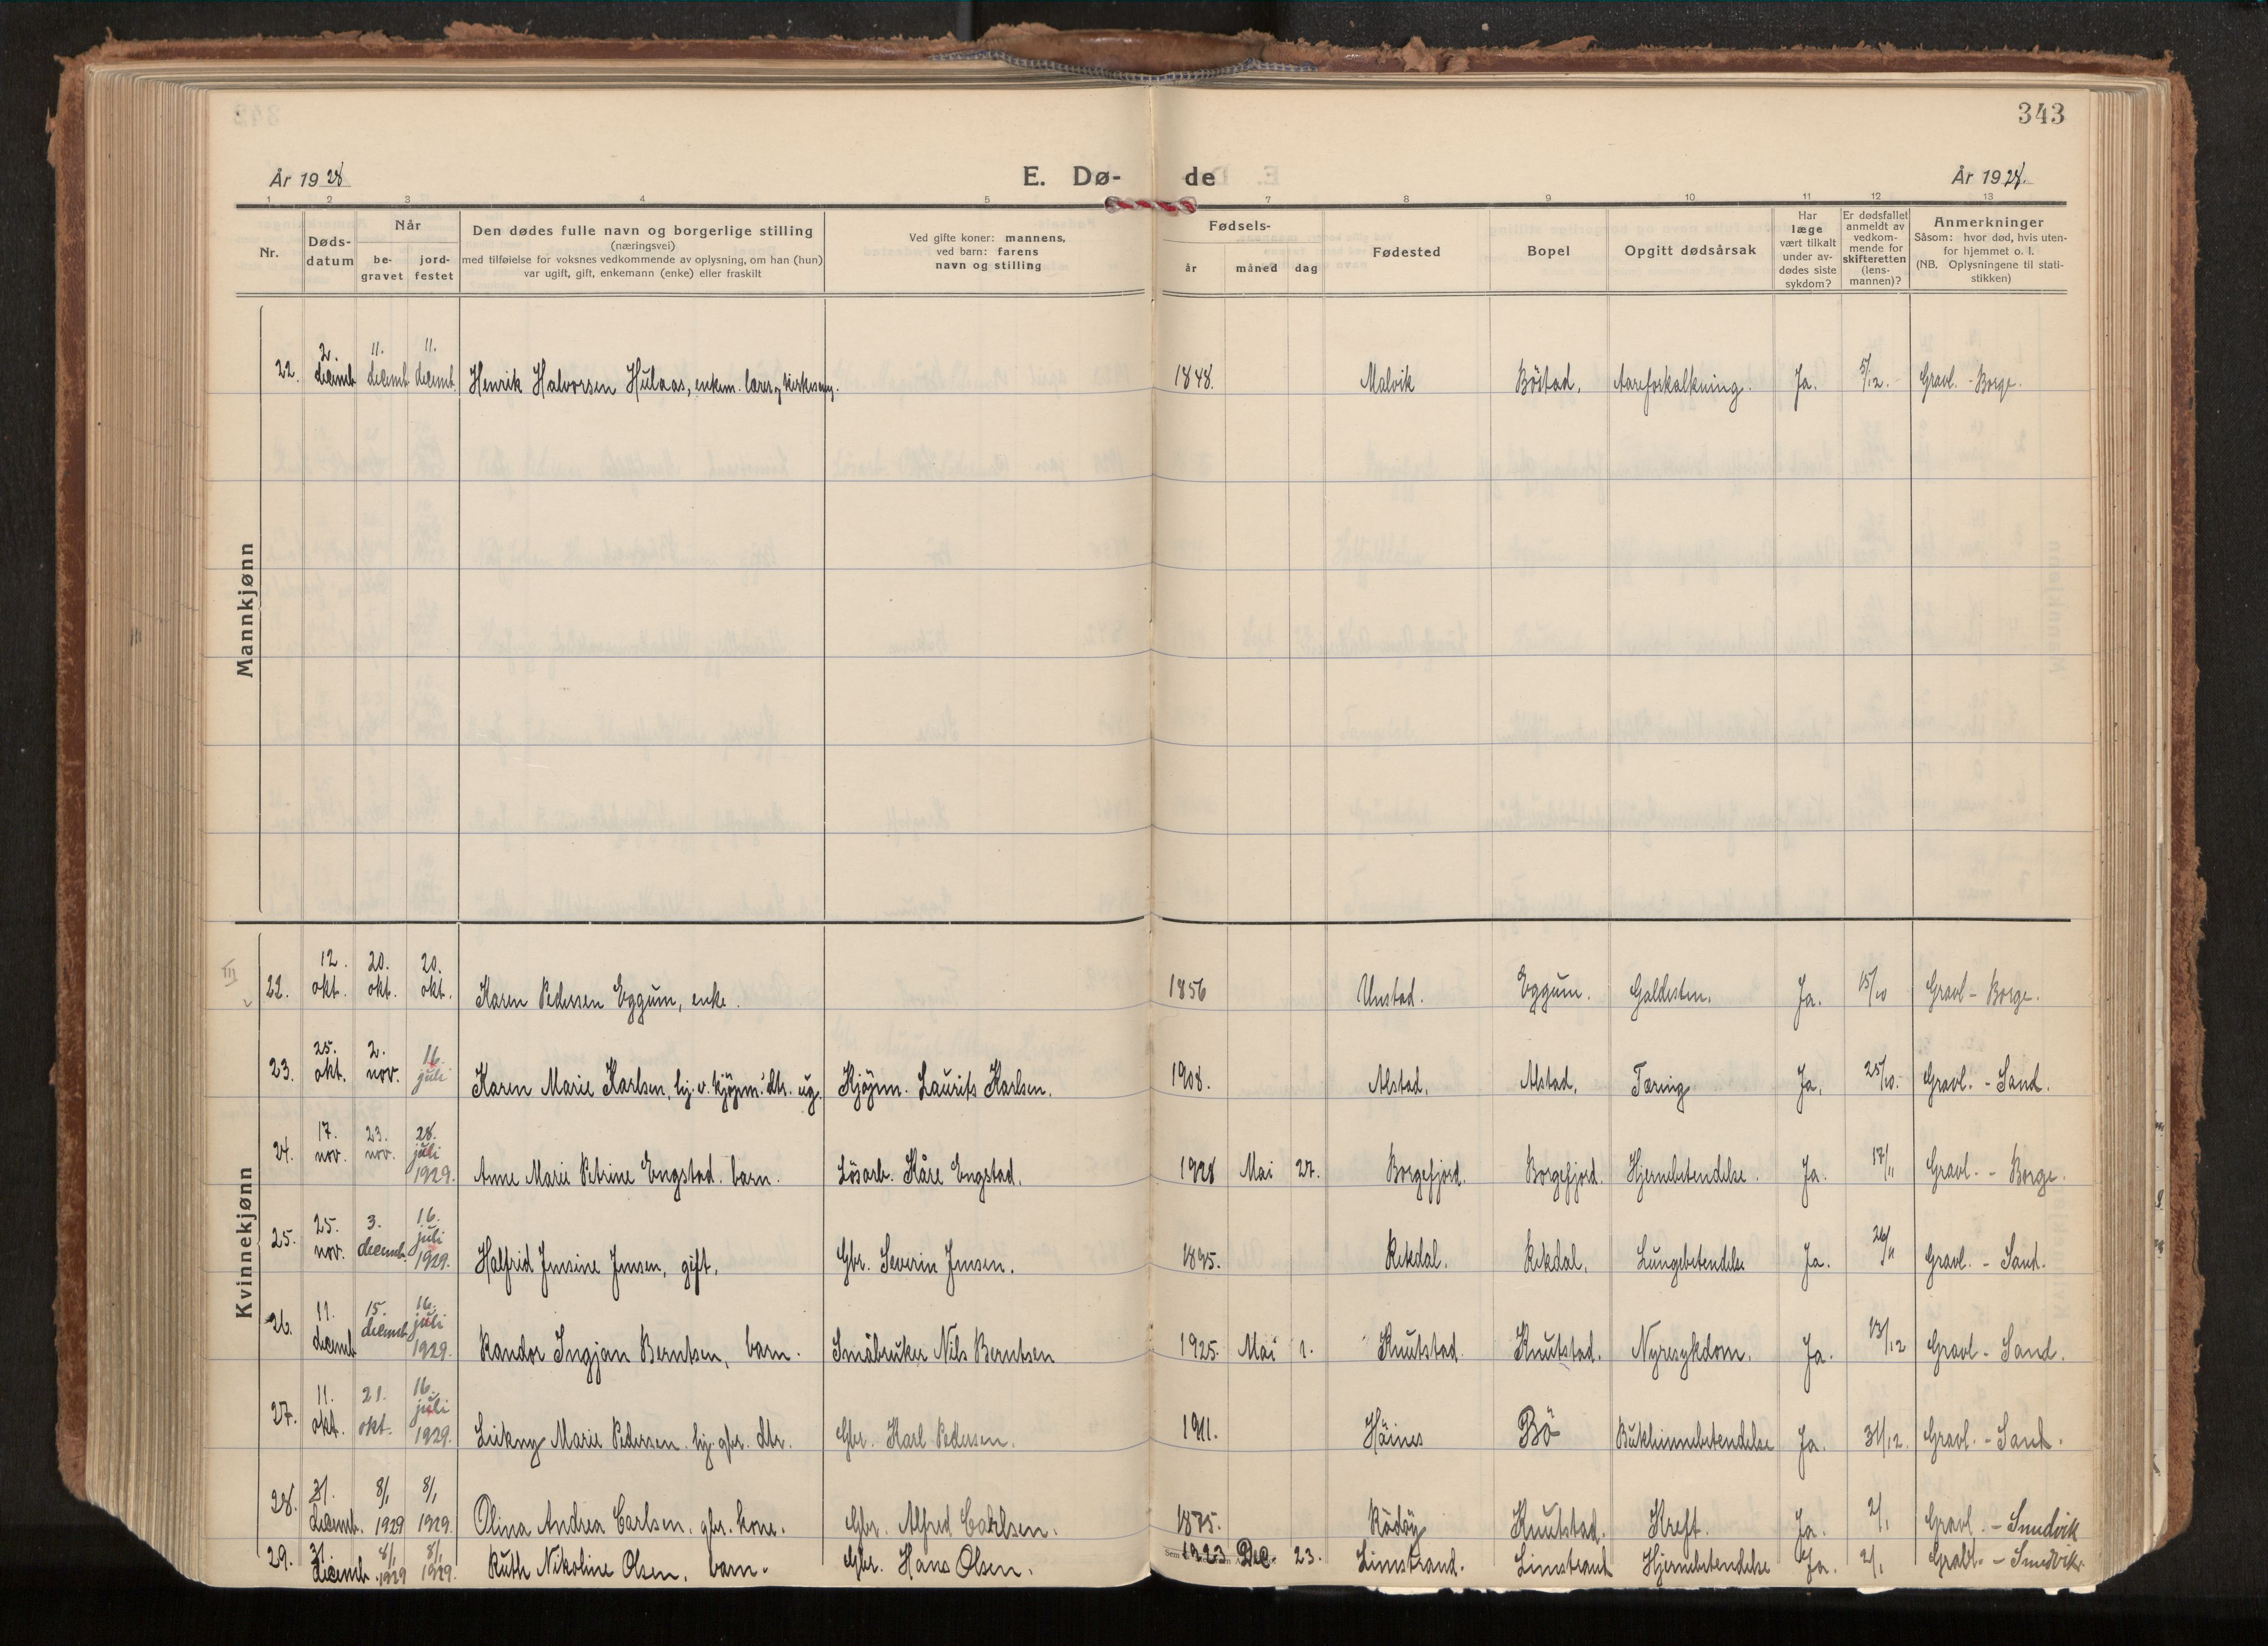 343
År 1928
E. Dø-
de
År 1928.
1 2 3 4 5 7 8 9 10 11 12 13
Nr.
Døds-
datum
Når
be-
gravet
jord-
festet
Den dødes fulle navn og borgerlige stilling
(næringsvei)
med tilføielse for voksnes vedkommende av oplysning, om han (hun)
var ugift, gift, enkemann (enke) eller fraskilt
Ved gifte koner: mannens,
ved barn: farens
navn og stilling
Fødsels-
år måned dag
Fødested
Bopel
Opgitt dødsårsak
Har
læge
vært tilkalt
under av-
dødes siste
sykdom?
Er dødsfallet
anmeldt av
vedkom-
mende for
skifteretten
(lens-
mannen)?
Anmerkninger
Såsom: hvor død, hvis uten-
for hjemmet o. l.
(NB. Oplysningene til stati-
stikken)
Mannkjønn
22. 2. decemb. 11. decemb. 11. decemb. Henrik Halvorsen Hulaas, enkem. lærer og kirkesang. 1848. Malvik Böstad. Aareforkalkning. Ja. 5/12. Gravl. - Borge.
Kvinnekjønn
III
22. 12. okt. 20. okt. 20. okt. Karen Pedersen Eggum, enke. 1856 Unstad. Eggum. Galdesten. Ja. 15/10 Gravl - Borge.
23. 25. okt. 2. nov. 16. juli Karen Marie Karlsen, hj. v. kjøpm. dtr. ug. Kjøpm. Laurits Karlsen. 1908. Alstad. Alstad. Tæring Ja. 25/10. Gravl. - Sand.
24. 17. nov. 23. nov. 28. juli 1929. Anne Marie Petrine Engstad. barn. Lösarb. Kåre Engstad. 1928 Mai 27. Borgefjord. Borgefjord. Hjernebetendelse. Ja. 17/11 Gravl. - Borge.
25. 25. nov. 3. decemb. 16. juli 1929. Halfrid Jensine Jensen, gift. Gbr. Severin Jensen. 1895. Rekdal. Rekdal. Lungebetendelse Ja. 26/11 Gravl. - Sand.
26. 11. decemb 15. decemb 16. juli 1929. Randor Ingjan Berntsen, barn. Småbruker Nils Berntsen 1925. Mai 1. Knutstad. Knutstad. Nyresykdom. Ja. 13/12 Gravl - Sand.
27. 11. okt. 21. okt. 16. juli 1929. Marie Pedersen. hj. gbr. dtr. Gbr. Karl Pedersen. 1911. Haines Bö Bukhinnebetendelse Ja. 31/12. Gravl. - Sand.
28. 31. decemb. 8/1 1929 8/1 1929. Olina Andrea Carlsen. gbr. kone. Gbr. Alfred Carlsen. 1875. Rödöy Knutstad. Kreft. Ja. 2/1 Gravl. - Smedvik
29. 31. decemb. 8/1 1929 8/1 1929. Ruth Nikoline Olsen. barn. Gbr. Hans Olsen. 1923 Dec. 23. Limstrand. Limstrand Hjernebetendelse Ja. 2/1 Gravl. - Smedvik.